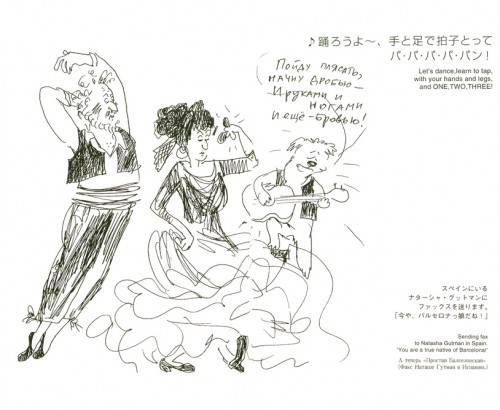 ♪踊ろうよ〜、手と足で拍子とって
パ・パ・パ・パ・パン!
Let's dance,learn to tap,
with your hands and legs,
and ONE,TWO,THREE!
Пойду плясать,
начну дробью –
И руками и
ногами
и ещё – бровью!
スペインにいる
ナターシャ・グットマンに
ファックスを送ります。
「今や、バルセロナっ娘だね!」
Sending fax
to Natasha Gutman in Spain.
"You are a true native of Barcelona!"
А теперь «Простая Барселонская»
(Факс Наташе Гутман в Испанию.)